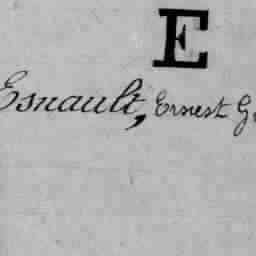 E
Esnault, Ernest G.